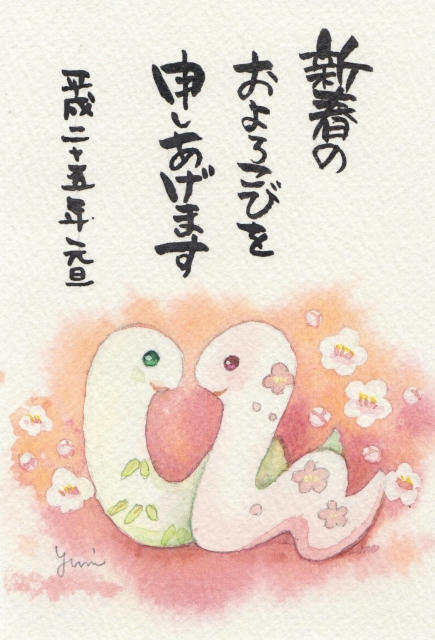 新春の
およろこびを
申しあげます
平成二十五年元旦
Yumi